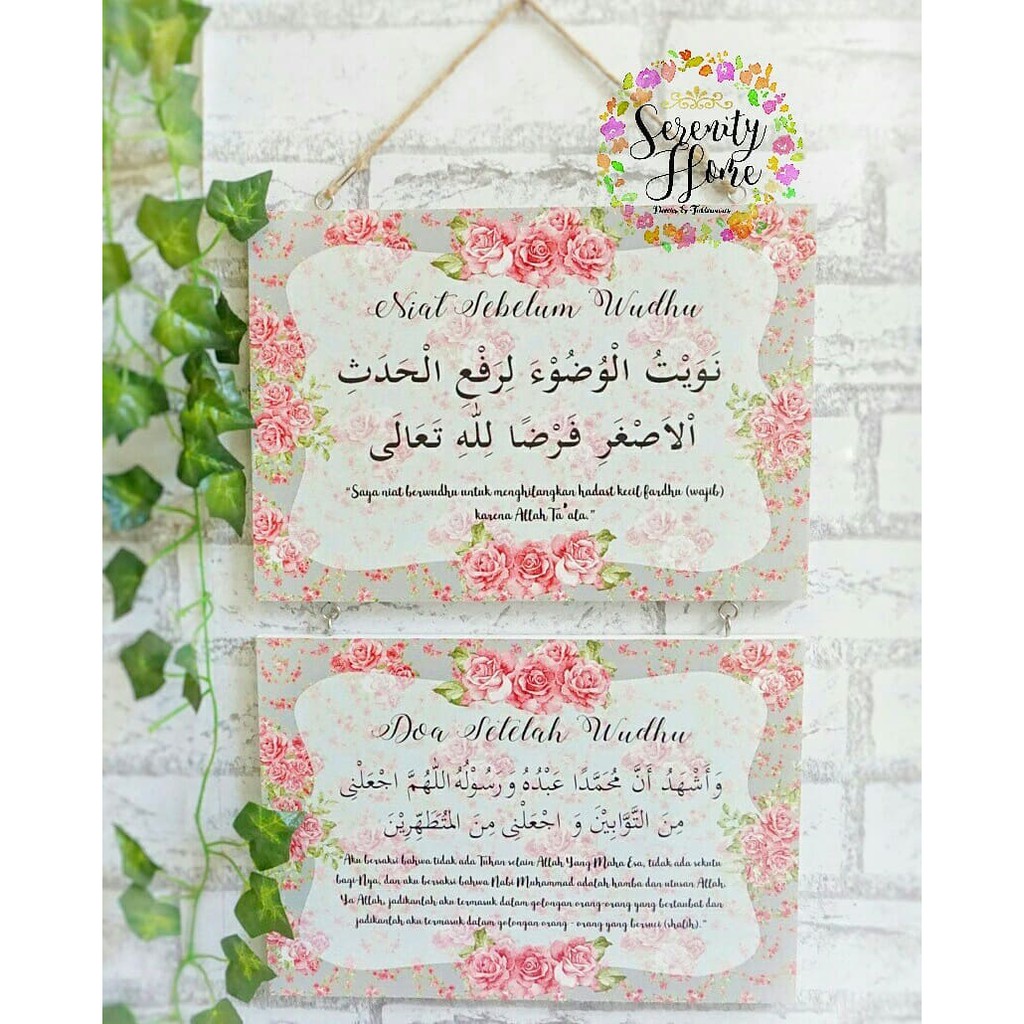 Serenity
Home
Niat Sebelum Wudhu
نَوَيْتُ الْوُضُوْءَ لِرَفْعِ الْحَدَثِ
اْلاَصْغَرِ فَرْضًا لِلّٰهِ تَعَالَى
"Saya niat berwudhu untuk menghilangkan hadast kecil fardhu (wajib)
karena Allah Ta'ala."
Doa Setelah Wudhu
وَأَشْهَدُ أَنَّ مُحَمَّدًا عَبْدُهُ وَرَسُوْلُهُ اللّٰهُمَّ اجْعَلْنِى
مِنَ التَّوَّابِيْنَ وَ اجْعَلْنِى مِنَ المُتَطَهِّرِيْنَ
"Aku bersaksi bahwa tidak ada Tuhan selain Allah Yang Maha Esa, tidak ada sekutu
bagi-Nya, dan aku bersaksi bahwa Nabi Muhammad adalah hamba dan utusan Allah.
Ya Allah, jadikanlah aku termasuk dalam golongan orang-orang yang bertaubat dan
jadikanlah aku termasuk dalam golongan orang - orang yang bersuci (shalih)."